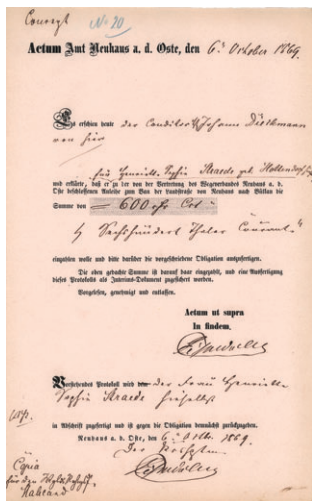 Concept
No 20
Actum Amt Neuhaus a. d. Oste, den 6. October 1869.
Es erschien heute der Conditor Johann Dieckmann
von hier
für Henriette Sophie Straede geb.
und erklärte, daß er zu der von der Vertretung des Wegeverbandes Neuhaus a. d.
Oste beschlossenen Anleihe zum Bau der Landstraße von Neuhaus nach Bülkau die
Summe von = 600 Crt =
Sechshundert Thaler Courant
einzahlen wolle und bitte darüber die vorgeschriebene Obligation auszufertigen.
Die oben gedachte Summe ist darauf baar eingezahlt, und eine Ausfertigung
dieses Protokolls als Interims-Dokument zugesichert worden.
Vorgelesen, genehmigt und entlassen.
Actum ut supra
In fidem.
Vorstehendes Protokoll wird der Frau Henriette
Sophie Straede hieselbst
in Abschrift zugefertigt und ist gegen die Obligation demnächst zurückzugeben.
Neuhaus a. d. Oste, den 6. Octbr 1869.
Copia
für den